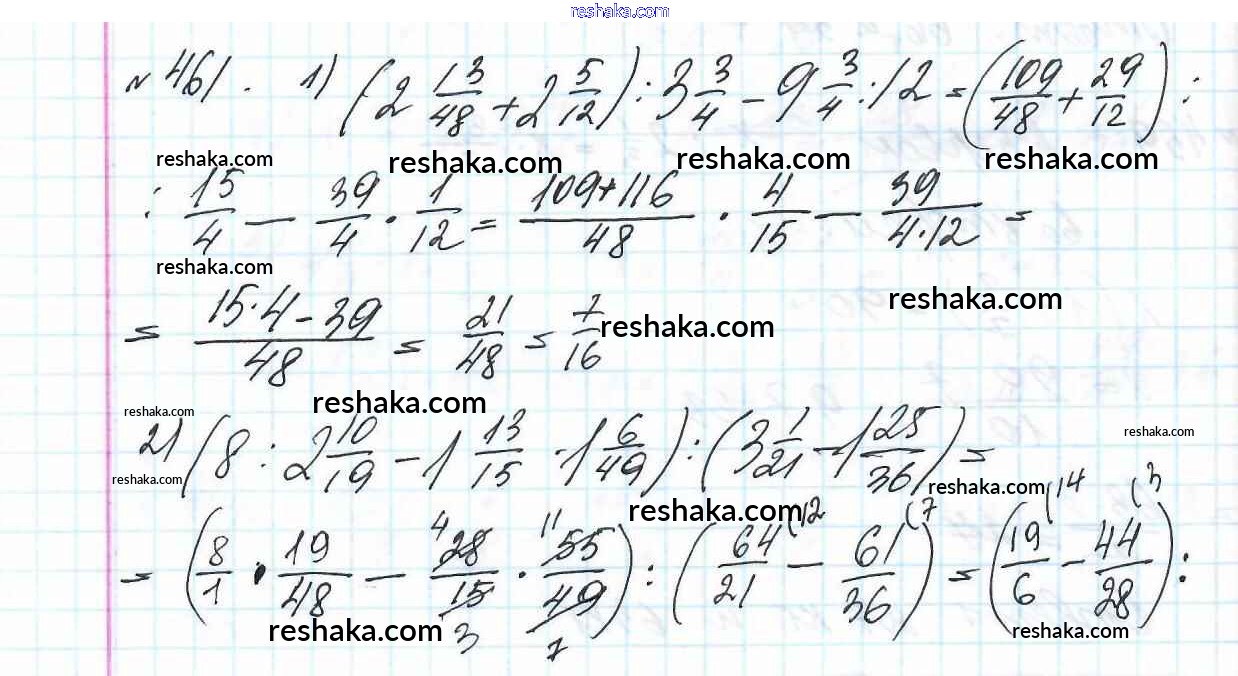 reshaka.com
№ 461. 1) (2 13/48 + 2 5/12) : 3 3/4 - 9 3/4 : 12 = (109/48 + 29/12) :
reshaka.com reshaka.com reshaka.com reshaka.com
: 15/4 - 39/4 · 1/12 = (109+116)/48 · 4/15 - 39/(4·12) =
reshaka.com
reshaka.com
= (15·4-39)/48 = 21/48 = 7/16
reshaka.com
reshaka.com
reshaka.com
reshaka.com
2) (8 : 2 10/19 - 1 13/15 · 1 6/49) : (3 1/21 - 1 25/36) =
reshaka.com
reshaka.com
reshaka.com
= (8/1 · 19/48 - 28/15 · 55/49) : (64/21 - 61/36) = (19/6 - 44/28) :
4 11 (12 (7 (14 (3
3 7
reshaka.com
reshaka.com